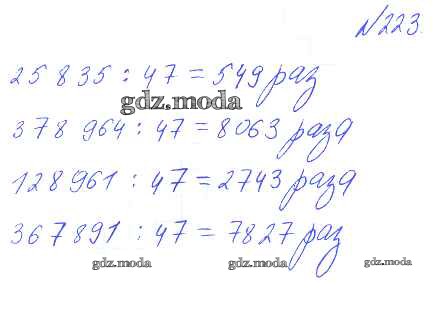 №223.
25 835 : 47 = 549 раз
gdz.moda
378 964 : 47 = 8063 раза
128961 : 47 = 2743 раза
367 891 : 47 = 7827 раз
gdz.moda gdz.moda gdz.moda